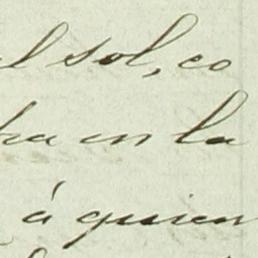 el sol, co
ha en la
á quien